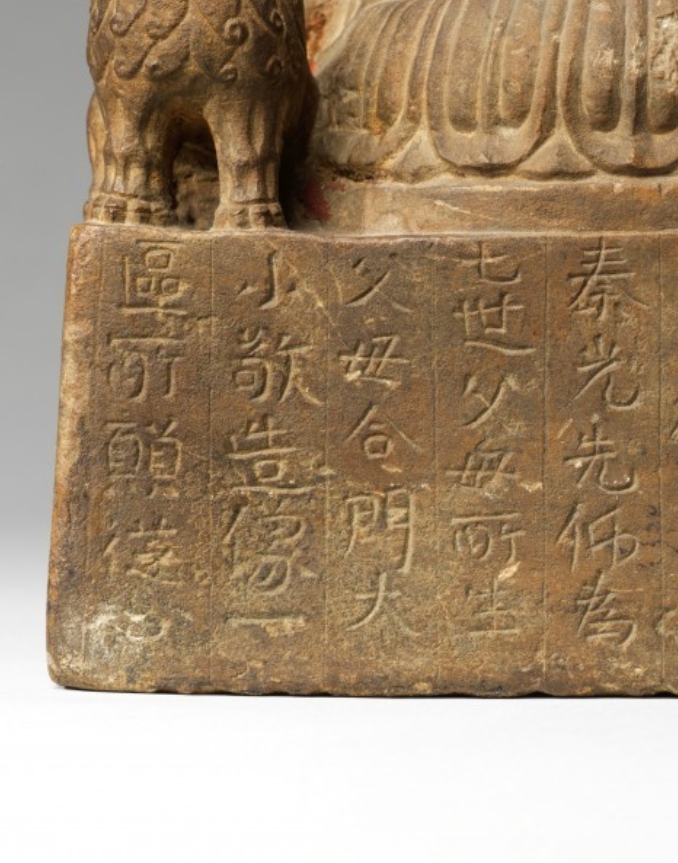 秦光先仰為
七世父母所生
父母合門大
小敬造像一
區所願從心